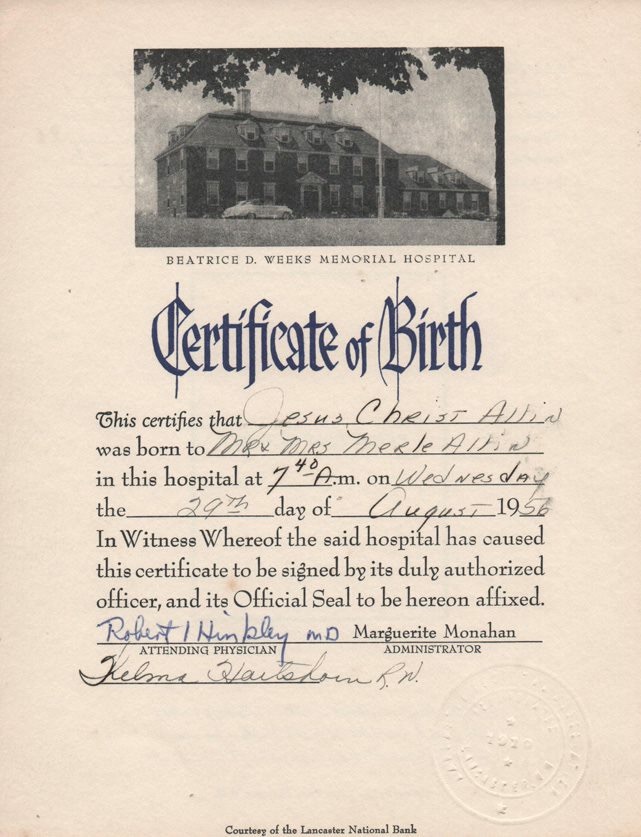 BEATRICE D. WEEKS MEMORIAL HOSPITAL
Certificate of Birth
This certifies that Jesus Christ Allin
was born to Mr & Mrs Merle Allin
in this hospital at 7 40 A.m. on Wednesday
the 29th day of August 1956
In Witness Whereof the said hospital has caused
this certificate to be signed by its duly authorized
officer, and its Official Seal to be hereon affixed.
Robert I Hinkley MD Marguerite Monahan
ATTENDING PHYSICIAN ADMINISTRATOR
Thelma Hartshorn R.N.
LANCASTER, N.H.
Courtesy of the Lancaster National Bank